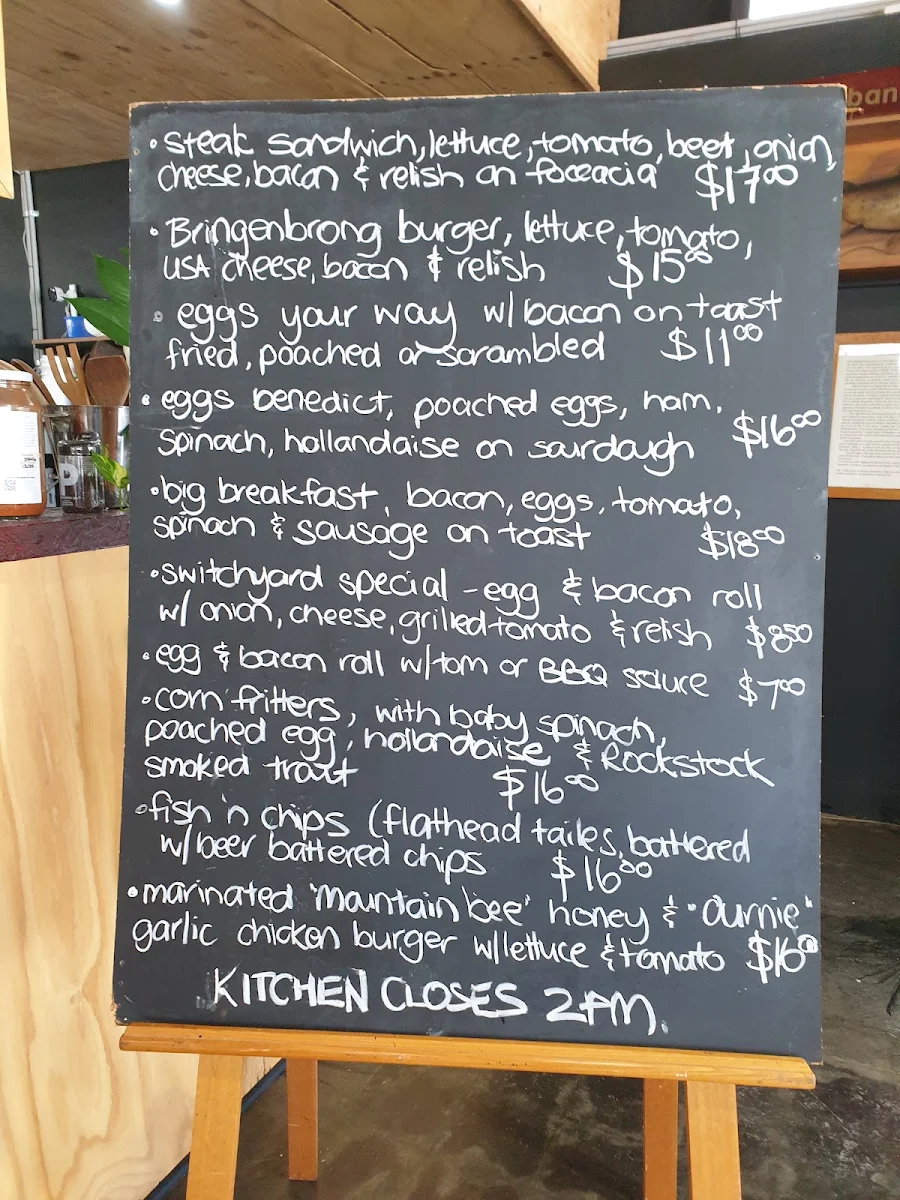 • steak sandwich, lettuce, tomato, beet, onion,
cheese, bacon & relish on foccacia $17.00
• Bringenbrong burger, lettuce, tomato,
USA cheese, bacon & relish $15.00
• eggs your way w/ bacon on toast
fried, poached or scrambled $11.00
• eggs benedict, poached eggs, ham,
spinach, hollandaise on sourdough $16.00
• big breakfast, bacon, eggs, tomato,
spinach & sausage on toast $18.00
• switchyard special - egg & bacon roll
w/ onion, cheese, grilled tomato & relish $8.50
• egg & bacon roll w/ tom or BBQ sauce $7.00
• corn fritters, with baby spinach,
poached egg, hollandaise & Rockstock
smoked trout $16.00
• fish 'n chips (flathead tailes, battered
w/ beer battered chips $16.00
• marinated 'Mountain bee' honey & "Ournie"
garlic chicken burger w/ lettuce & tomato $16.00
KITCHEN CLOSES 2PM.
ban